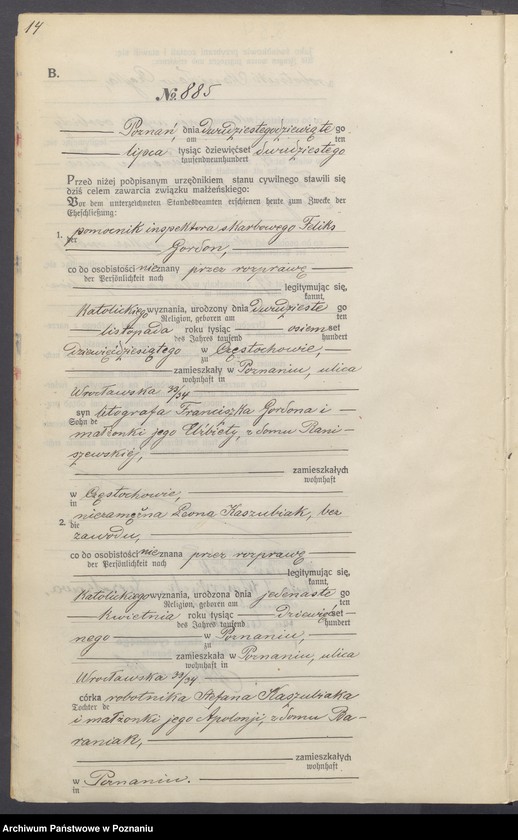 14
B.
№ 885
Poznań, dnia dwudziestego dziewiąte go
am ten
lipca tysiąc dziewięćset dwudziestego
tausendneunhundert
Przed niżej podpisanym urzędnikiem stanu cywilnego stawili się
dziś celem zawarcia związku małżeńskiego:
Vor dem unterzeichneten Standesbeamten erschienen heute zum Zwecke der
Eheschließung:
1. pomocnik inspektora skarbowego Feliks
der
Gordon,
co do osobistości nieznany przez rozprawę
der Persönlichkeit nach
legitymując się,
kannt,
Katolickiego wyznania, urodzony dnia dwudzieste go
Religion, geboren am ten
listopada roku tysiąc osiemset
des Jahres tausend hundert
dziewięćdziesiątego w Częstochowie,
zu
zamieszkały w Poznaniu, ulica
wohnhaft in
Wrocławska 33/34
syn litografa Franciszka Gordona i
Sohn de
małżonki jego Elżbiety, z domu Rani-
szewskiej,
zamieszkałych
wohnhaft
w Częstochowie,
in
2. niezamężna Leona Kaszubiak, bez
die
zawodu,
co do osobistości nieznana przez rozprawę
der Persönlichkeit nach
legitymując się,
kannt,
Katolickiego wyznania, urodzona dnia jedenaste go
Religion, geboren am ten
kwietnia roku tysiąc dziewięćset
des Jahres tausend hundert
nego w Poznaniu,
zu
zamieszkała w Poznaniu, ulica
wohnhaft in
Wrocławska 33/34
córka robotnika Stefana Kaszubiaka
Tochter de
i małżonki jego Apolonji, z domu Ba-
raniak,
zamieszkałych
wohnhaft
w Poznaniu.
in
Archiwum Państwowe w Poznaniu
szukajwarchiwach.gov.pl